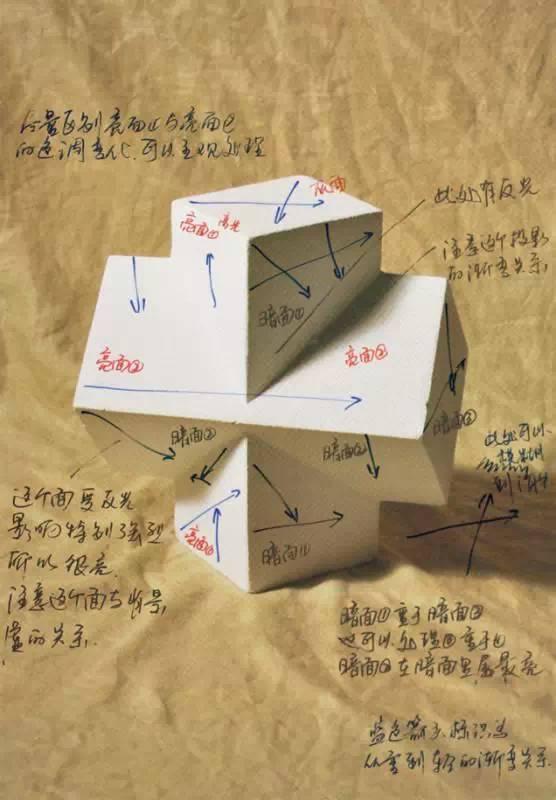 尽量区别亮面①与亮面②
的色调变化.可以主观处理
灰面
亮面①高光
此处有反光
注意这个投影
的渐变关系.
暗面①
亮面②
亮面②
暗面②
暗面②
暗面②
此处可以
这个面受反光
影响特别强烈
所以很亮.
注意这个面与背景
的关系.
亮面①
暗面①
暗面①重于暗面②
也可以处理②重于①
暗面②在暗面里属最亮
蓝色箭头标识为
从重到轻的渐变关系.